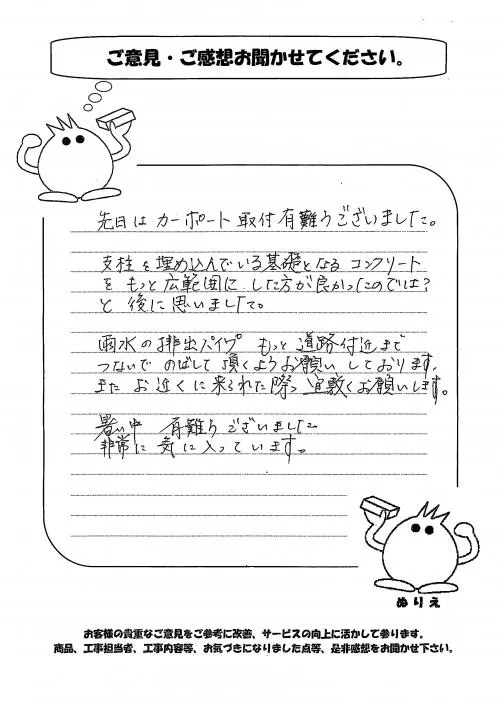 ご意見・ご感想お聞かせてください。
先日は カーポート 取付 有難うございました。
支柱を埋め込んでいる基礎となる コンクリート
を もっと 広範囲に した方が良かったのでは?
と 後に思いました。
雨水の 排出パイプ もっと 道路付近まで
つないで のばして 頂くようお願い しております。
また お近くに 来られた際 宜敷くお願いします。
暑い中 有難うございました
非常に 気に入っています。
ぬりえ
お客様の貴重なご意見をご参考に改善、サービスの向上に活かして参ります。
商品、工事担当者、工事内容等、お気づきになりました点等、是非感想をお聞かせ下さい。